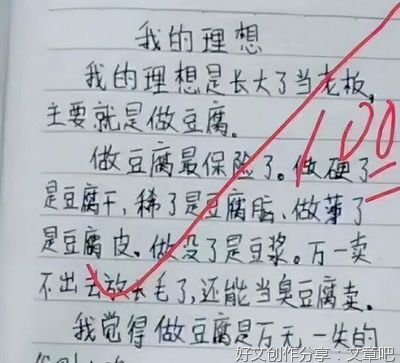 我的理想
我的理想是长大了当老板,
主要就是做豆腐。
做豆腐最保险了。做硬了
是豆腐干,稀了是豆腐脑、做薄了
是豆腐皮、做没了是豆浆。万一卖
不出去放长毛了,还能当臭豆腐卖。
我觉得做豆腐是万无一失的
100
好文创作分享·文章吧